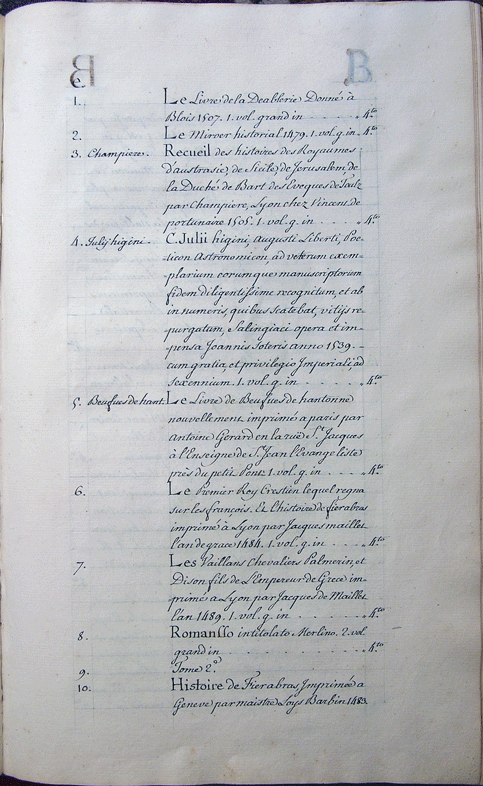 B B
1. Le Livre de la Deablerie Donné à
Blois 1507. 1. vol. grand in . . . . 4.to
2. Le Mirver historial 1479. 1. vol. g. in . 4.to
3. Champiere. Recueil des histoires des Royaumes
d'austrasie, de Sicile, de Jerusalem, de
la Duché de Bart des Eveques de
par Champiere, Lyon chez Vincent de
portunaire 1505. 1. vol. g. in . . . . . 4.to
4. Julij higini. C. Julii higini, Augusti Liberti, Poe-
ticon Astronomicon, ad veterum exem-
plarium eorumque manuscriptorum
fidem diligentissime recognitum, et ab
innumeris, quibus scatebat, vitijs re-
purgatum, Salingiaci opera et im-
pensa Joannis Soteris anno 1539.
cum gratia, et privilegio Imperiali, ad
sexennium. 1. vol. g. in . . . . . . 4.to
5. Beufues de hant. Le Livre de Beufues de hantonne
nouvellement imprimé a paris par
Antoine Gerard en la ruë St. Jacques
à l'Enseigne de St. Jean l'Evangeliste
près du petit Pont. 1. vol. g. in . . . . 4.to
6. Le Premier Roy Crestien lequel regna
sur les françois. Et l'histoire de fierabras
imprimé à Lyon par Jacques maillet
l'an de grace 1484. 1. vol. g. in . . . . 4.to
7. Les Vaillans Chevaliers Palmerin, et
Dison fils de L'Empereur de Grece im-
primé a Lyon par Jacques de Maillet
l'an 1489. 1. vol. g. in . . . . . . 4.to
8. Romansso intitolato Merlino. 2. vol.
grand in . . . . . . . . . . . 4.to
9. Tome 2.o
10. Histoire de Fierabras, Imprimée a
Geneve par maistre Loys Barbin 1483